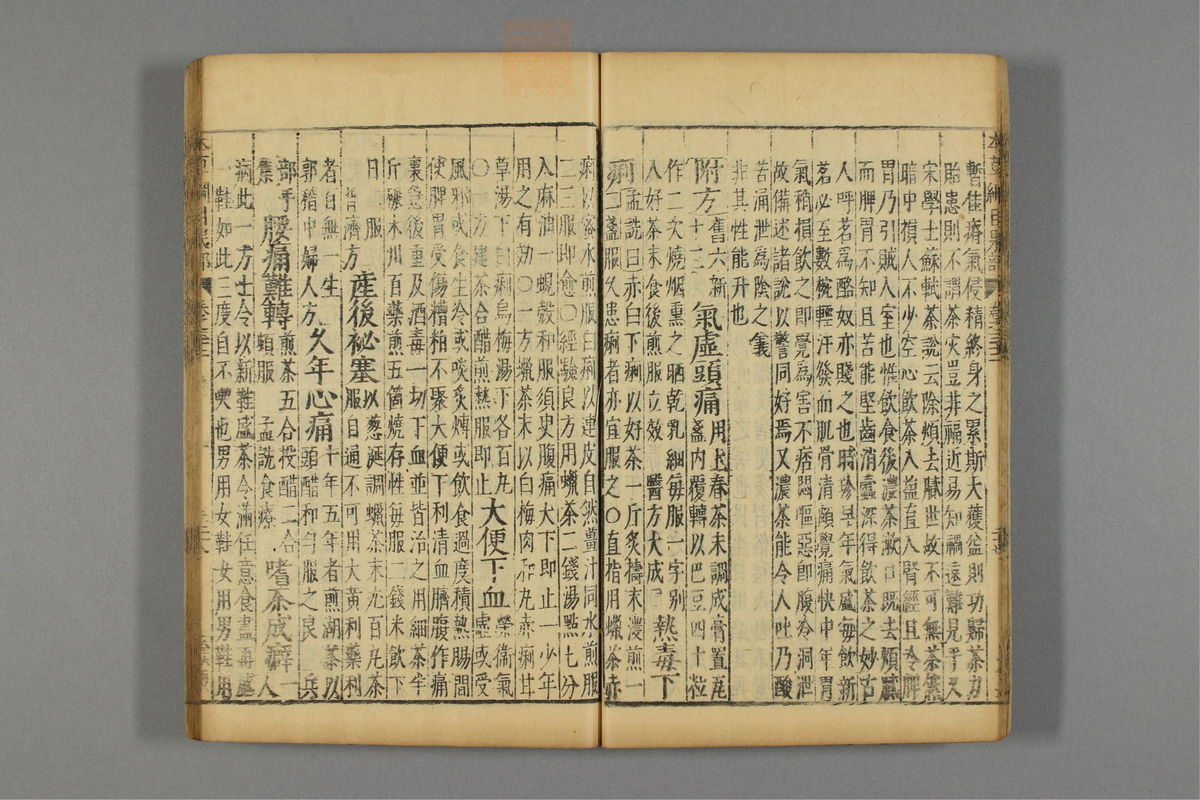 暫佳瘠氣侵精終身之累斯大獲益則功歸茶力
貽患則不謂茶災豈非福近易知禍遠難見乎又
宋學士蘇軾茶說云除煩去膩世故不可無茶然
暗中損人不少空心飲茶入鹽直入腎經且冷脾
胃乃引賊入室也惟飲食後濃茶漱口既去煩膩
而脾胃不知且苦能堅齒消蠹深得飲茶之妙古
人呼茗為酪奴亦賤之也時珍早年氣盛每飲新
茗必至數椀輕汗發而肌骨清頗覺痛快中年胃
氣稍損飲之即覺為害不痞悶嘔惡即腹冷洞泄
故備述諸說以警同好焉又濃茶能令人吐乃酸
苦涌泄為陰之義
非其性能升也
附方舊六新十三 氣虛頭痛用上春茶末調成膏置瓦盞內覆轉以巴豆四十粒
作二次燒烟熏之晒乾乳細每服一字別
入好茶末食後煎服立效 醫方大成 熱毒下
痢孟詵曰赤白下痢以好茶一斤炙擣末濃煎一
二盞服久患痢者亦宜服之○直指用蠟茶赤
痢以蜜水煎服白痢以連皮自然薑汁同水煎服
二三服即愈○經驗良方用蠟茶二錢湯點七分
入麻油一蜆殼和服須臾腹痛大下即止一少年
用之有效○一方蠟茶末以白梅肉和丸赤痢甘
草湯下白痢烏梅湯下各百丸
○一方建茶合醋煎熱服即止 大便下血榮衛氣虛或受
風邪或食生冷或啖炙煿或飲食過度積熱腸間
使脾胃受傷糟粕不聚大便下利清血臍腹作痛
裏急後重及酒毒一切下血並皆治之用細茶半
斤碾末川百藥煎五箇燒存性每服二錢米飲下
日服 普濟方 產後秘塞以葱涎調蠟茶末丸百丸茶服自通不可用大黃利藥利
者百無一生
郭稽中婦人方 久年心痛十年五年者煎湖茶以頭醋和勻服之良 兵
部手集 腰痛難轉煎茶五合投醋二合頓服 孟詵食療 嗜茶成癖一人
病此一方士令以新鞋盛茶令滿任意食盡再盛
一鞋如此三度自不喫也男用女鞋女用男鞋用